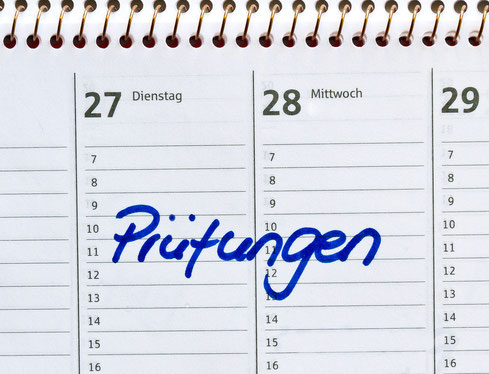 27 Dienstag 28 Mittwoch 29
7 7 7
8 8 8
9 9 9
10 10 10
Prüfungen
11 11 11
12 12 12
13 13 13
14 14 14
15 15 15
16 16 16